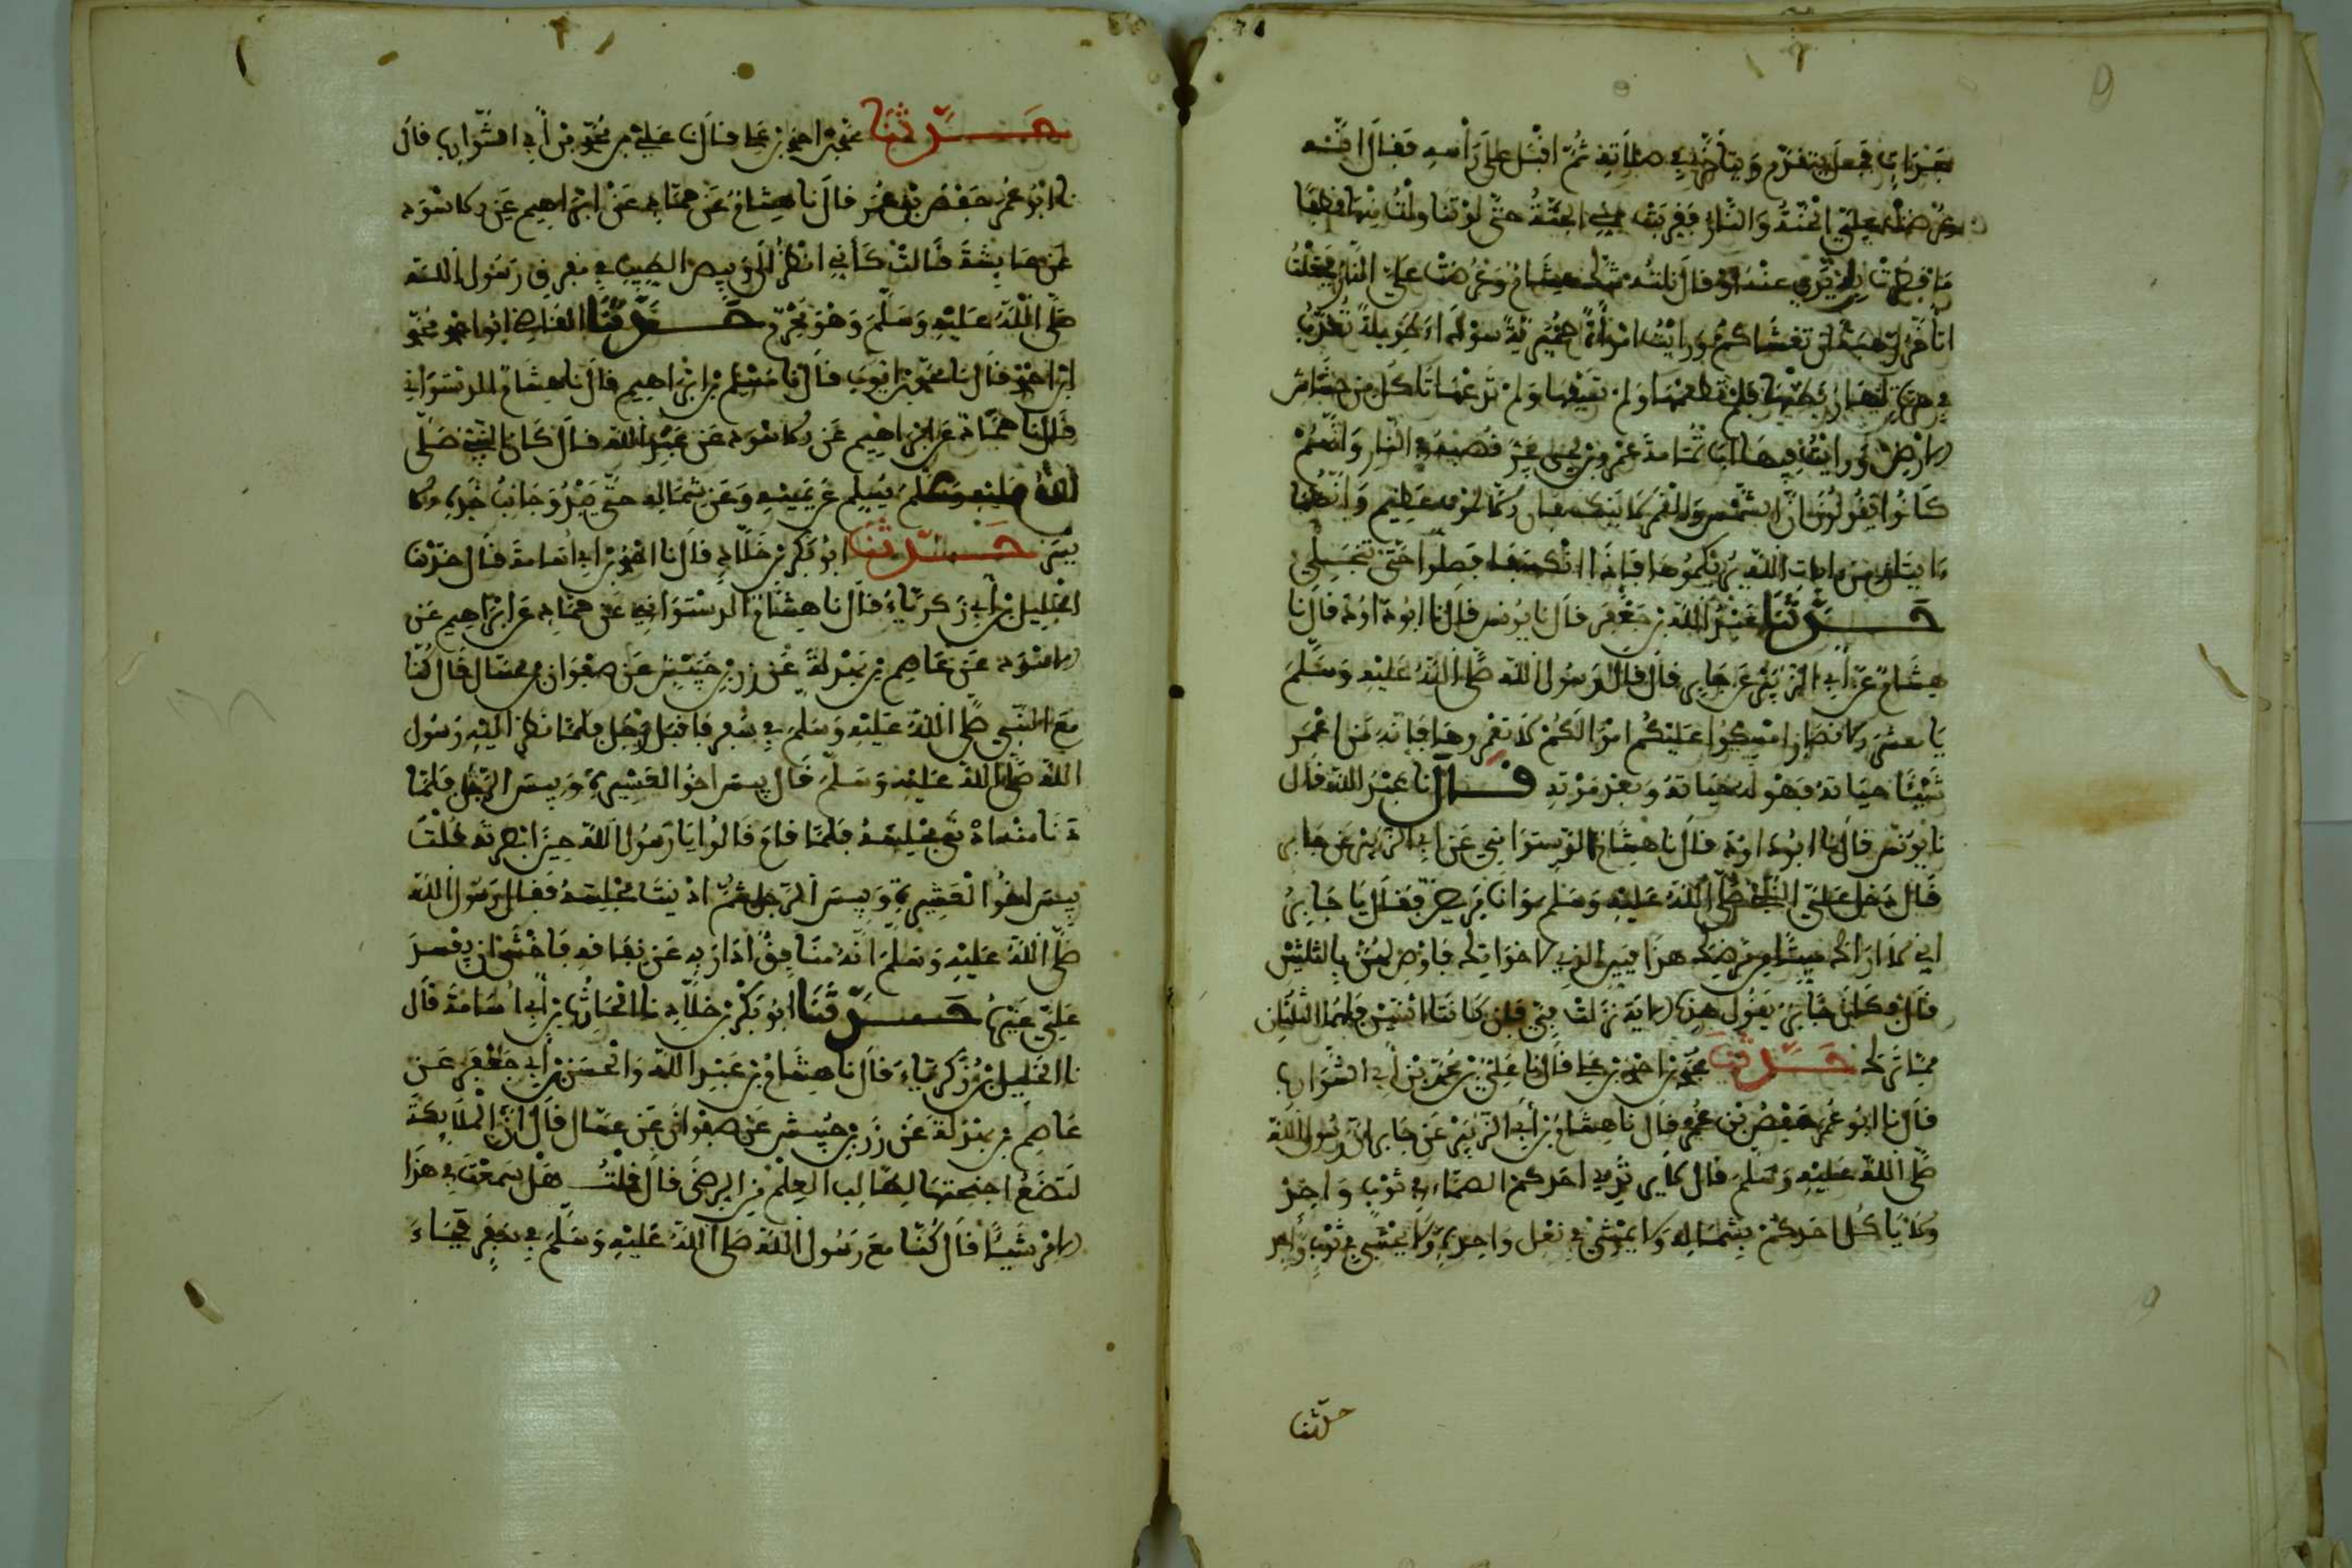 فجعل يتقدم ويتاخر في صلاته ثم اقبل على راسه فقال انه
عرضت علي الجنة والنار فقربت مني الجنة حتى لو تناولت منها قطفا
ما قصرت يدي عنه او قال نلته شك هشام وعرضت علي النار فجعلت
اتاخر رهبة ان تغشاكم ورايت امراة حميرية سوداء طويلة تعذب
في هرة لها ربطتها فلم تطعمها ولم تسقها ولم تدعها تاكل من خشاش
الارض ورايت فيها ابا ثمامة عمرو بن يجر قصبه في النار وانهم
كانوا يقولون ان الشمس والقمر لا ينكسفان الا لموت عظيم وانهما
ءايتان من ءايات الله يريكموها فاذا انكسفا فصلوا حتى تنجلي
حَدَّثَنَا عبد الله بن جعفر قال نا يونس قال نا ابو داود قال نا
هشام عن أبي الزبير عن جابر قال قال رسول الله صلى الله عليه وسلم
يا معشر الانصار امسكوا عليكم اموالكم لا تعمروها فانه من اعمر
شيئا حياته فهو له حياته وبعد موته قال نا عبد الله قال
نا يونس قال نا ابو داود قال نا هشام الدستوائي عن ابي الزبير عن جابر
قال دخل علي النبي صلى الله عليه وسلم وانا مريض فقال يا جابر
اني لا اراك ميتا من مرضك هذا فبين الذي لاخواتك فاوص لهن بالثلثين
قال فكان جابر يقول هذه الاية نزلت في فان كانتا اثنتين فلهما الثلثان
مما ترك حَدَّثَنَا محمد بن احمد بن علي قال نا علي بن محمد بن أبي الشوارب
قال نا ابو عمر حفص بن عمر قال نا هشام بن أبي الزبير عن جابر ان رسول الله
صلى الله عليه وسلم قال لا يرتدي احدكم الصماء في ثوب واحد
ولا ياكل احدكم بشماله ولا يمشي في نعل واحدة ولا يحتبي في ثوب واحد
حدثنا
حَدَّثَنَا محمد بن احمد بن علي قال نا علي بن محمد بن أبي الشوارب قال
نا ابو عمر حفص بن عمر قال نا هشام عن حماد عن ابراهيم عن الاسود
عن عايشة قالت كأني انظر الى وبيص الطيب في مفرق رسول الله
صلى الله عليه وسلم وهو محرم حَدَّثَنَا القاضي ابو احمد محمد
بن احمد قال نا محمد بن ايوب قال نا مسلم بن ابراهيم قال نا هشام الدستوائي
قال نا حماد عن ابراهيم عن الاسود عن عبد الله قال كان النبي صلى
الله عليه وسلم يسلم عن يمينه وعن شماله حتى يبدو جانب خده الا
يسر حَدَّثَنَا ابو بكر بن خلاد قال نا الحارث بن ابي اسامة قال حدثنا
الخليل بن أبي زكرياء قال نا هشام الدستوائي عن حماد عن ابراهيم عن
الاسود عن عاصم بن بهدلة عن زر بن حبيش عن صفوان بن عسال قال كنا
مع النبي صلى الله عليه وسلم في سفر فاقبل رجل فلما نظر اليه رسول
الله صلى الله عليه وسلم قال بيس اخو العشيرة وبيس الرجل فلما
دنا منه ادنى مجلسه فلما قام قالوا يا رسول الله حين ابصرته قلت
بيس اخو العشيرة وبيس الرجل ثم ادنيت مجلسه فقال رسول الله
صلى الله عليه وسلم انه منافق اداريه عن نفاقه فاخشى ان يفسد
علي غيره حَدَّثَنَا ابو بكر بن خلاد نا الحارث بن أبي اسامة قال
نا الخليل بن زكرياء قال نا هشام بن عبد الله والحسن بن أبي جعفر عن
عاصم بن بهدلة عن زر بن حبيش عن صفوان بن عسال قال ان الملايكة
لتضع اجنحتها لطالب العلم من الرضى قال قلت هل سمعت في هذا
الامر شيئا قال كنا مع رسول الله صلى الله عليه وسلم في سفر فجاء